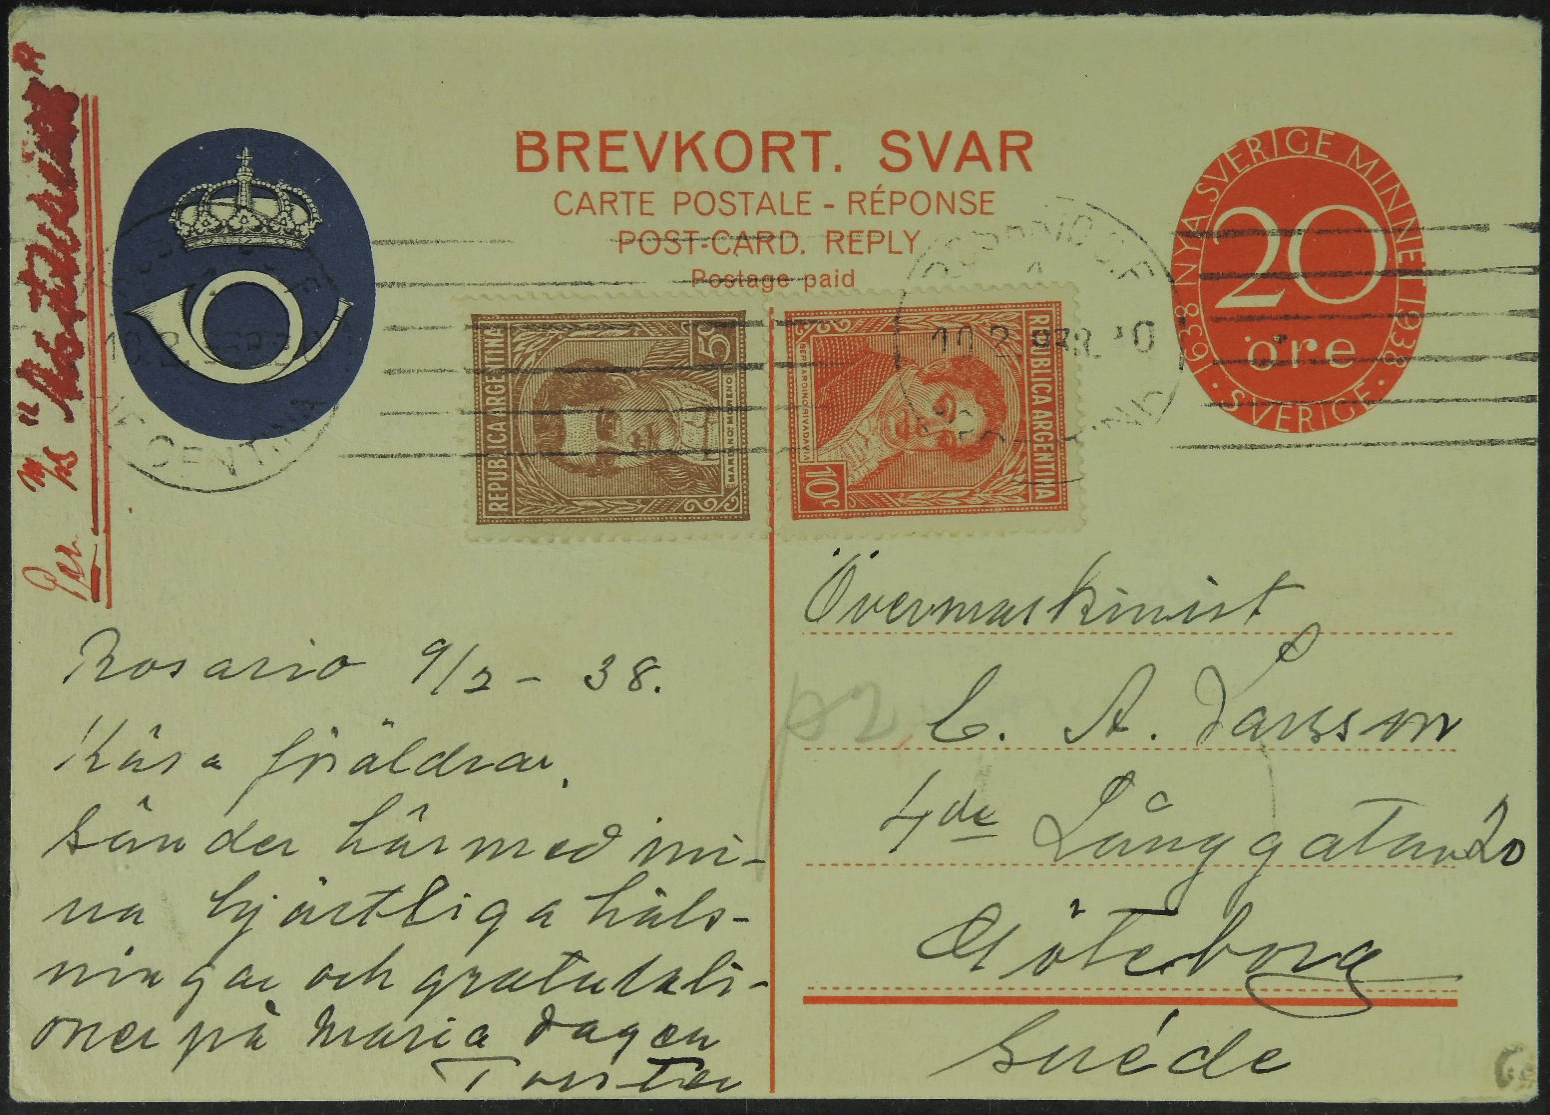 BREVKORT. SVAR
CARTE POSTALE - RÉPONSE
POST-CARD. REPLY
Postage paid
1638 NYA SVERIGE MINNET 1938
20
öre
· SVERIGE ·
REPUBLICA ARGENTINA
5c
MARIANO MORENO
REPUBLICA ARGENTINA
10c
BERNARDINO RIVADAVIA
ROSARIO
ARGENTINA
Per M/S
Rosario 9/2 - 38.
Kära föräldrar.
Sänder härmed mi-
na hjärtliga häls-
ningar och gratulati-
oner på Maria dagen
Torsten
Övermaskinist
C. A. Larsson
4de Långgatan 20
Göteborg
Suéde